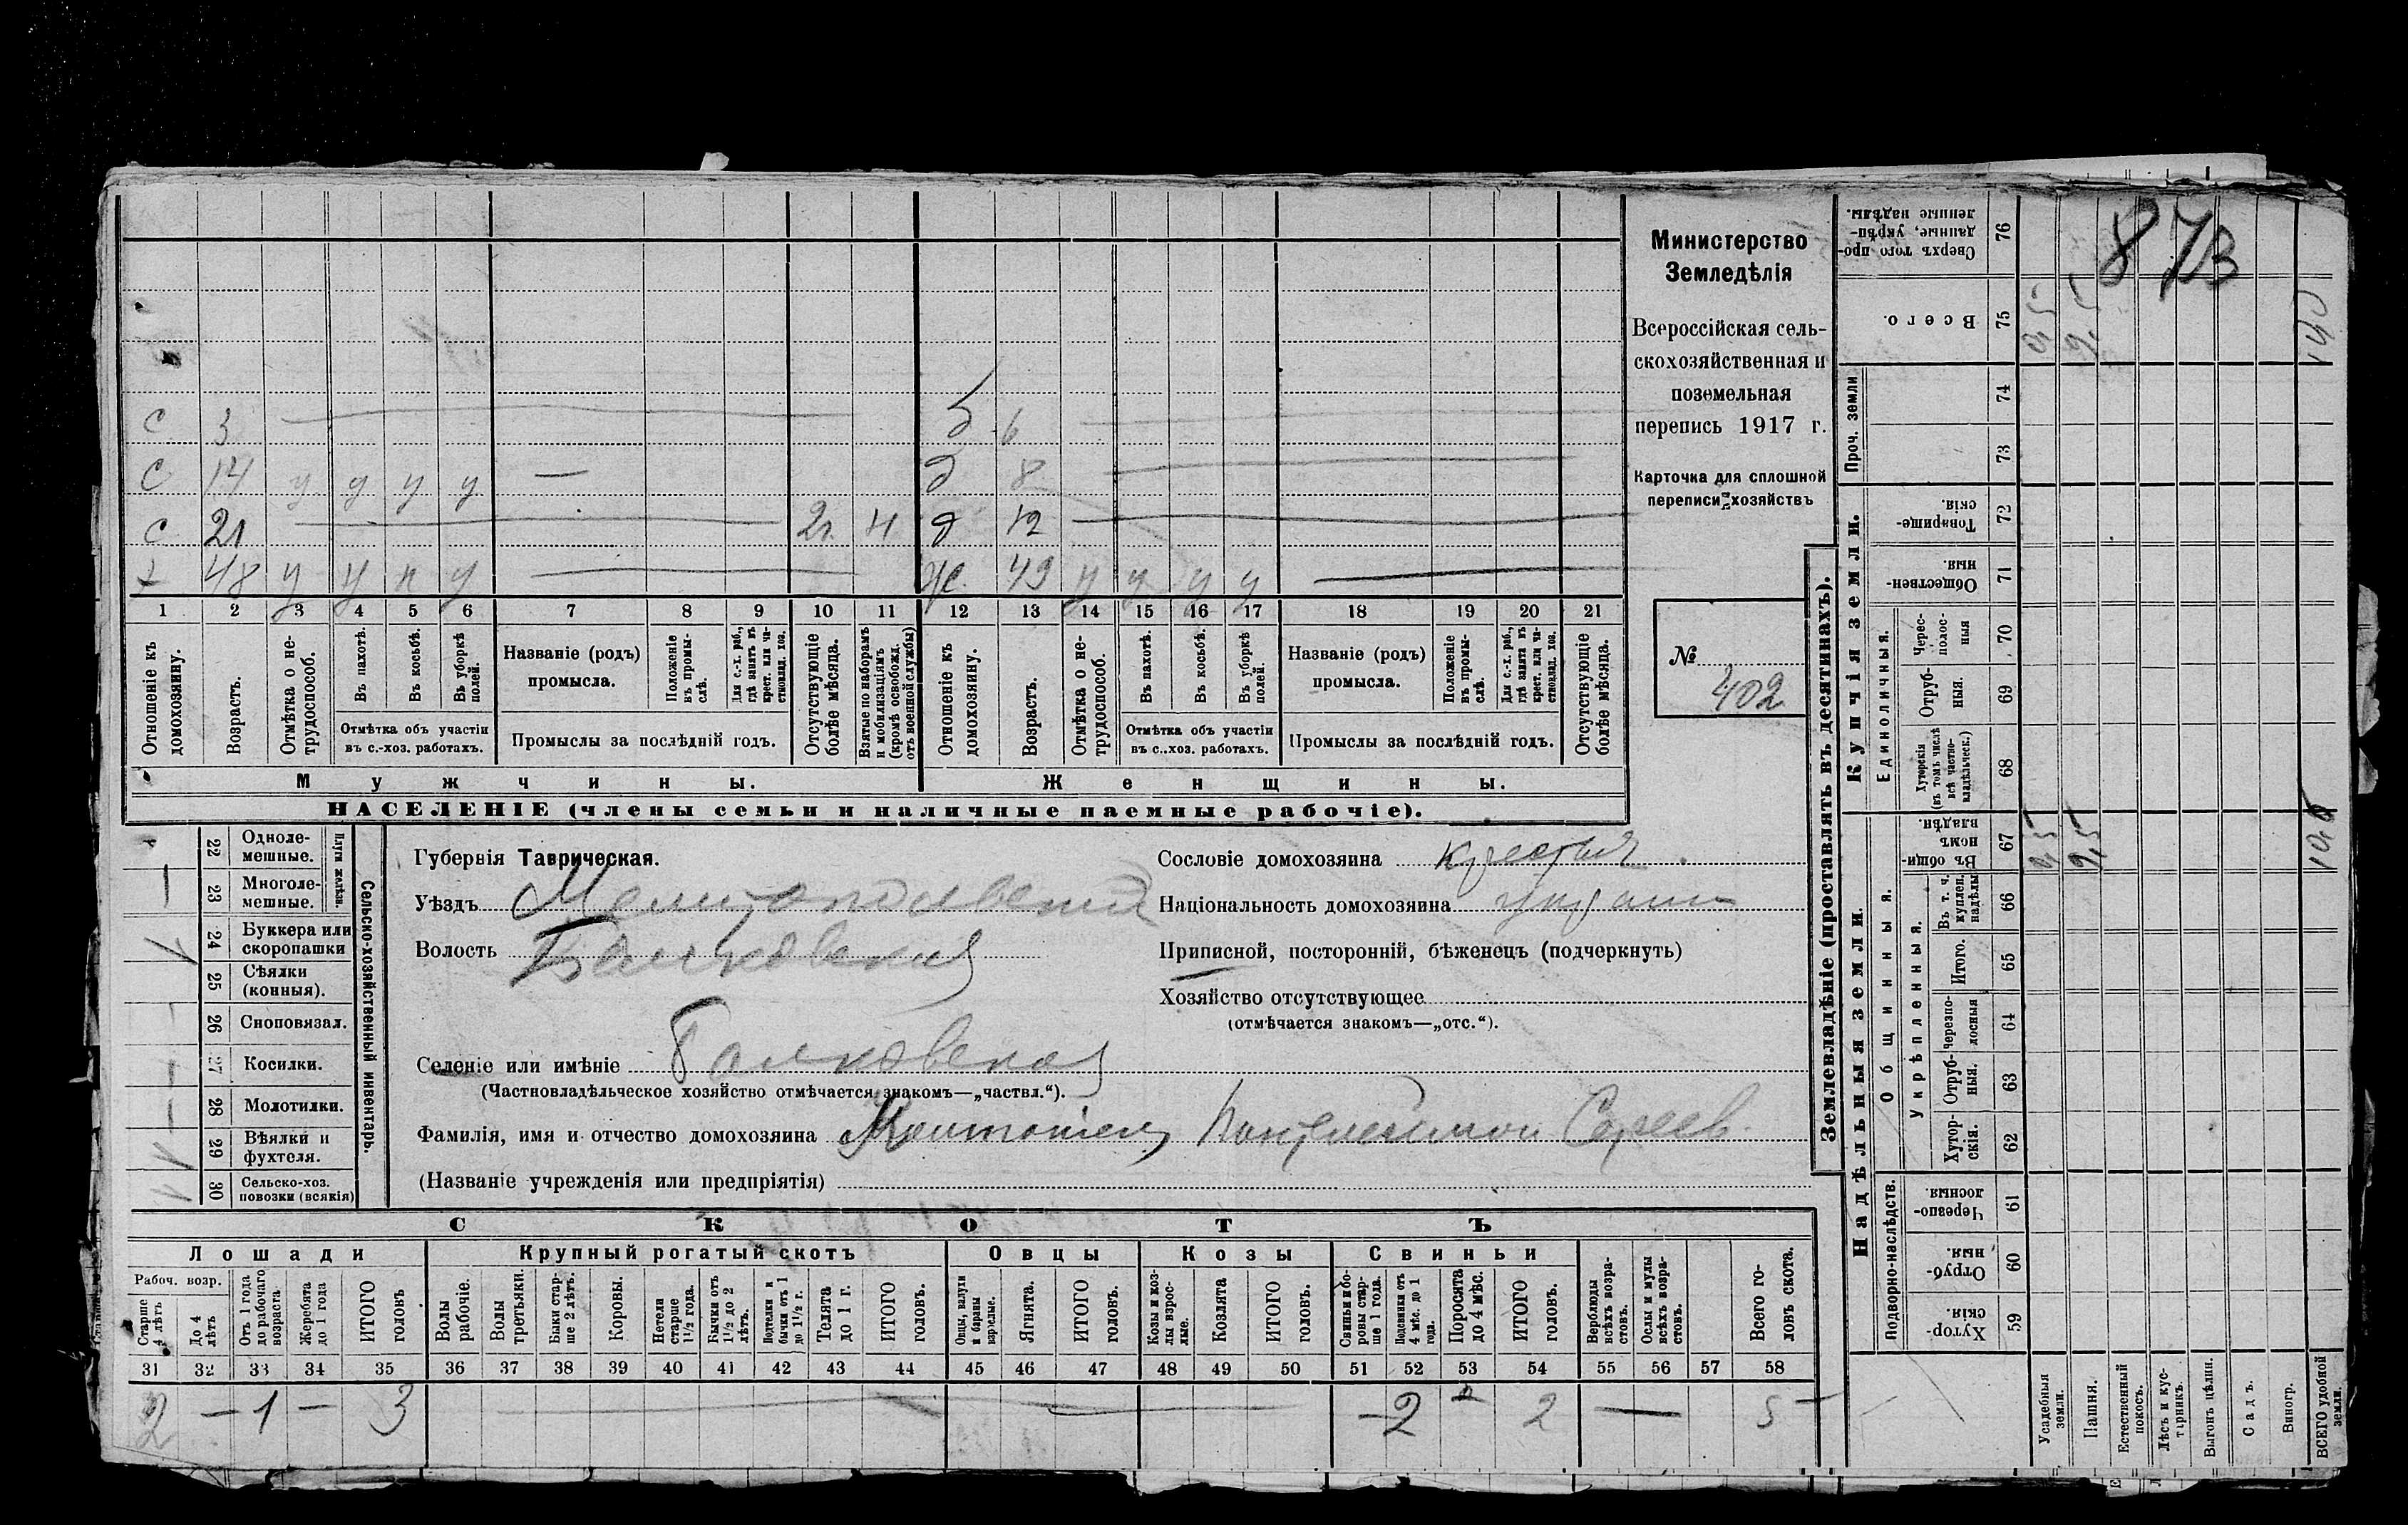 873
Министерство
Земледѣлія
Всероссійская сель-
скохозяйственная и
поземельная
перепись 1917 г.
Карточка для сплошной
переписи хозяйствъ
№
402
с 3 д 6
с 14 у у у у — д 8
с 21 2г. д 12
х 48 у у п у ж. 49 у у у у
1 2 3 4 5 6 7 8 9 10 11 12 13 14 15 16 17 18 19 20 21
Отношеніе къ домохозяину.
Возрастъ.
Отмѣтка о не-трудоспособ.
Въ пахотѣ.
Въ косьбѣ.
Въ уборкѣ полей.
Отмѣтка объ участіи
въ с.-хоз. работахъ.
Названіе (родъ)
промысла.
Положеніе въ промы-слѣ.
Для с.-х. раб., гдѣ занятъ въ крест. или ча-стновлад. хоз.
Промыслы за послѣдній годъ.
Отсутствующіе болѣе мѣсяца.
Взятые по наборамъ и мобилизаціямъ (кромѣ освобожд. отъ военной службы)
Отношеніе къ домохозяину.
Возрастъ.
Отмѣтка о не-трудоспособ.
Въ пахотѣ.
Въ косьбѣ.
Въ уборкѣ полей.
Отмѣтка объ участіи
въ с.-хоз. работахъ.
Названіе (родъ)
промысла.
Положеніе въ промы-слѣ.
Для с.-х. раб., гдѣ занята въ крест. или ча-стновлад. хоз.
Промыслы за послѣдній годъ.
Отсутствующіе болѣе мѣсяца.
Мужчины. Женщины.
НАСЕЛЕНІЕ (члены семьи и наличные наемные рабочіе).
Сельско-хозяйственный инвентарь.
Плуги желѣзн.
22 Одноле-мешные.
23 Многоле-мешные.
24 Буккера или скоропашки
25 Сѣялки (конныя).
26 Сноповязал.
27 Косилки.
28 Молотилки.
29 Вѣялки и фухтеля.
30 Сельско-хоз. повозки (всякія)
Губернія Таврическая.
Уѣздъ Мелитопольскій
Волость Балковская
Селеніе или имѣніе Балковская
(Частновладѣльческое хозяйство отмѣчается знакомъ—„частвл.“).
Фамилія, имя и отчество домохозяина Пантелеймон Сергеев.
(Названіе учрежденія или предпріятія)
Сословіе домохозяина крестьян
Національность домохозяина украин
Приписной, посторонній, бѣженецъ (подчеркнуть)
Хозяйство отсутствующее
(отмѣчается знакомъ—„отс.“).
СКОТЪ
Лошади Крупный рогатый скотъ Овцы Козы Свиньи
Рабоч. возр.
Старше 4 лѣтъ
До 4 лѣтъ
Отъ 1 года до рабочаго возраста
Жеребята до 1 года
ИТОГО головъ
Волы рабочіе.
Волы третьяки.
Быки стар-ше 2 лѣтъ.
Коровы.
Нетели старше 1½ года.
Бычки отъ 1½ до 2 лѣтъ.
Подтелки и бычки отъ 1 до 1½ г.
Телята до 1 г.
ИТОГО головъ.
Овцы, валухи и бараны взрослые.
Ягнята.
ИТОГО головъ.
Козы и коз-лы взрос-лые.
Козлята
ИТОГО головъ.
Свиньи и бо-ровы стар-ше 1 года.
Подсвинки отъ 4 мѣс. до 1 года.
Поросята до 4 мѣс.
ИТОГО головъ.
Верблюды всѣхъ возра-стовъ.
Ослы и мулы всѣхъ возра-стовъ.
Всего го-ловъ скота.
31 32 33 34 35 36 37 38 39 40 41 42 43 44 45 46 47 48 49 50 51 52 53 54 55 56 57 58
2 — 1 — 3 — 2 2 — 5
Землевладѣніе (проставлять въ десятинахъ).
Купчія земли.
Надѣльныя земли.
Проч. земли
Единоличныя.
Общинныя.
Укрѣпленныя.
Подворно-наслѣдств.
Сверхъ того про-данные, укрѣп-ленные надѣлы. 76
Всего. 75
74
73
Товарище-скія. 72
Обществен-ныя. 71
Черес-полос-ныя 70
Отруб-ныя. 69
Хуторскія (въ томъ числѣ всѣ частно-владѣльческ.) 68
Въ общин-номъ владѣн. 67
Въ т. ч. куплен. надѣлы 66
Итого. 65
Черезпо-лосныя 64
Отруб-ныя. 63
Хутор-скія. 62
Черезпо-лосныя. 61
Отруб-ныя. 60
Хутор-скія. 59
Усадебныя земли.
Пашня.
Естественный покосъ.
Лѣсъ и кус-тарникъ.
Выгонъ цѣлин.
Садъ.
Виногр.
ВСЕГО удобной земли.